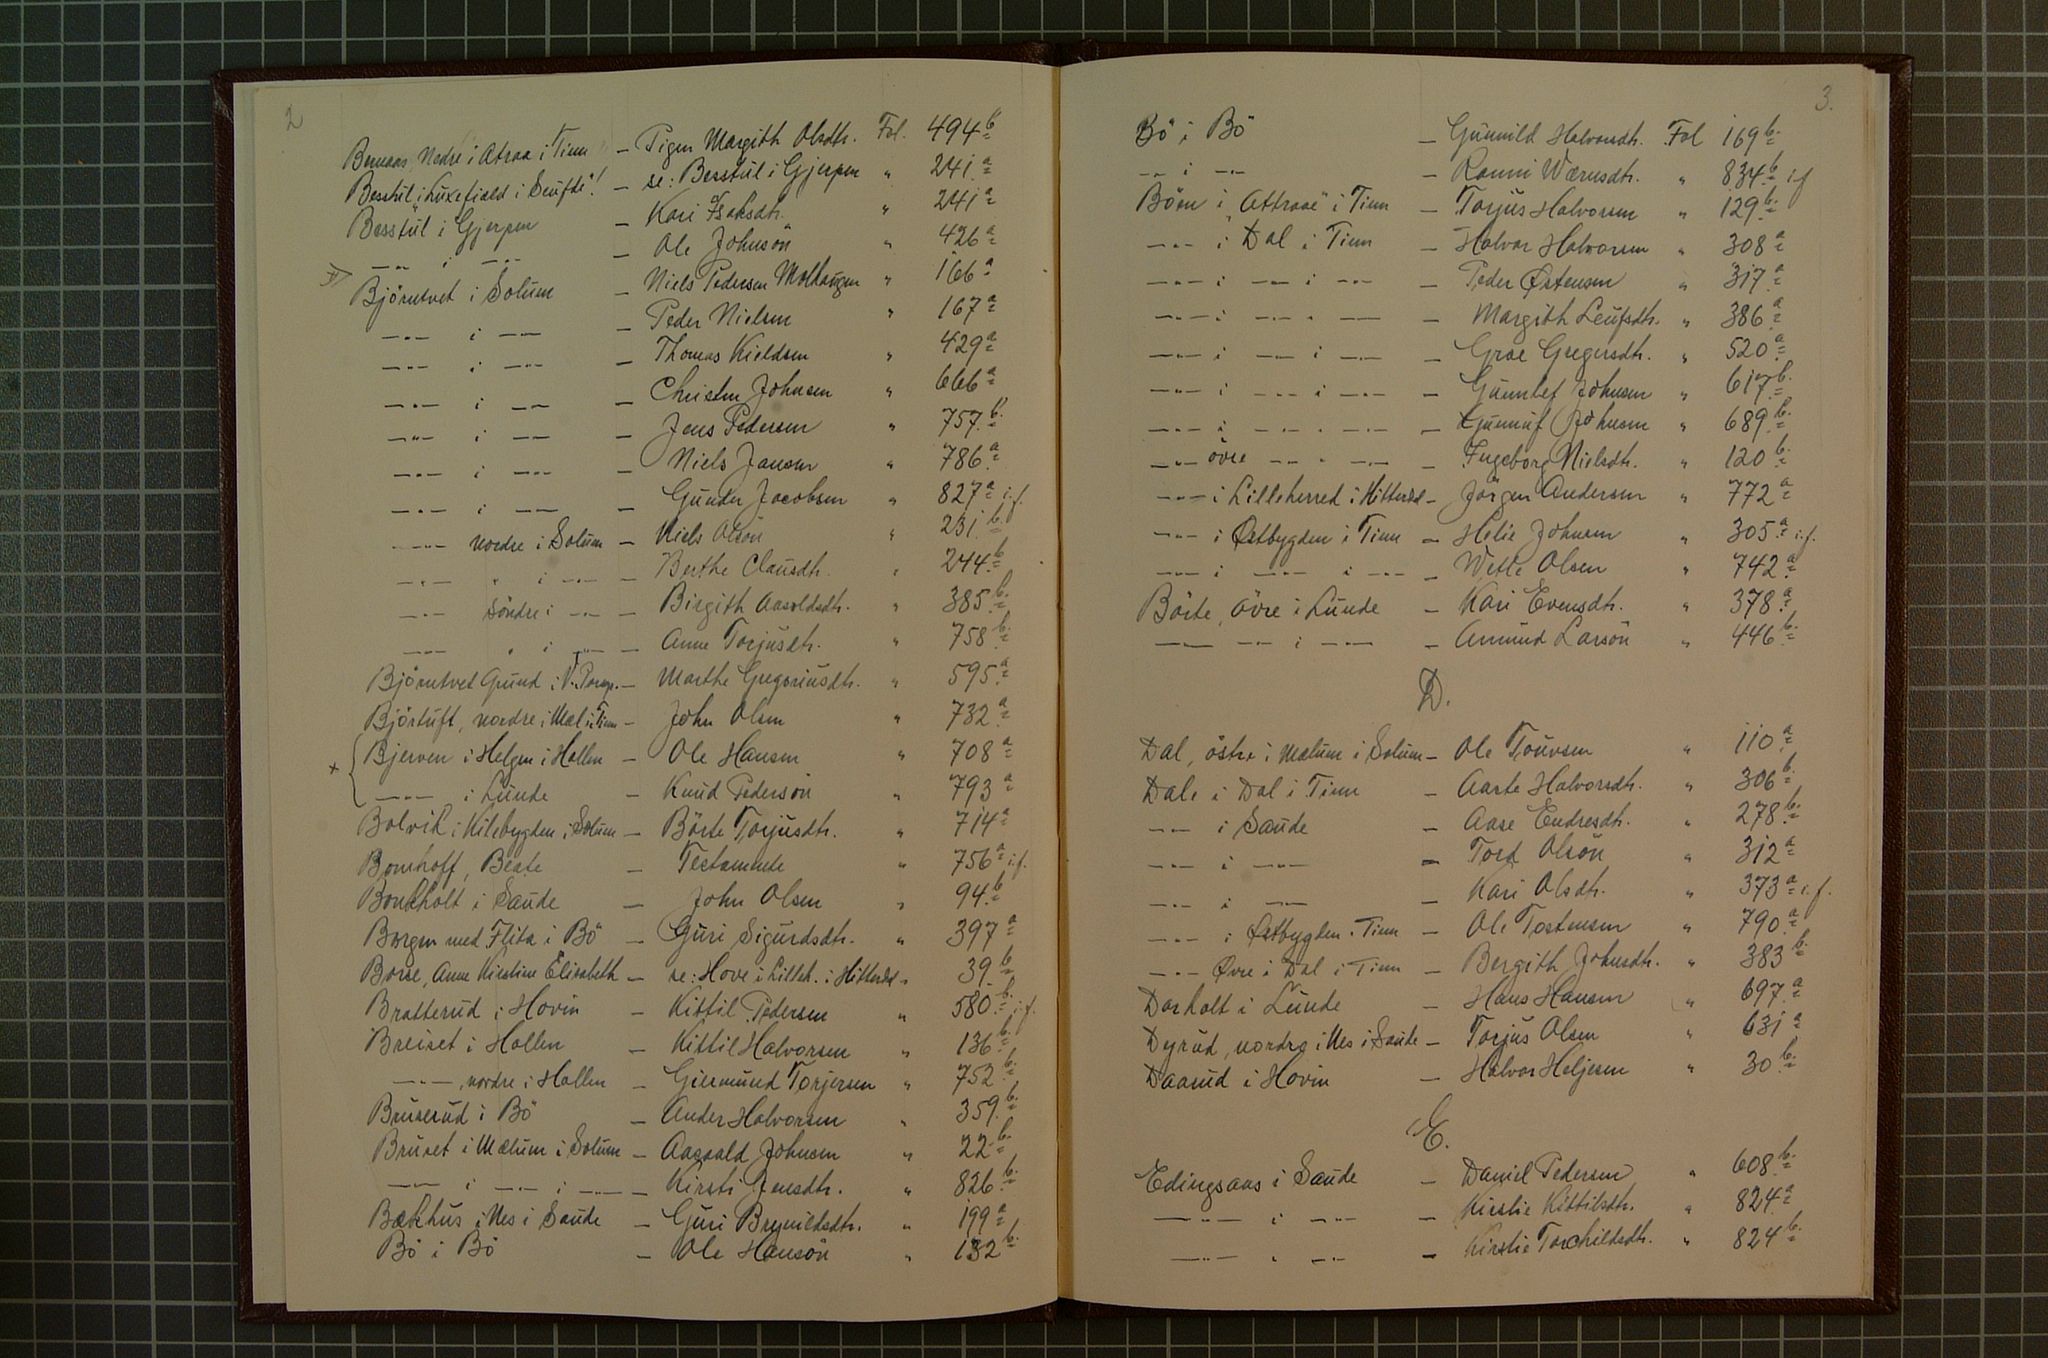 2
Bernaas, Nedre i Atraa i Tinn — Pigen Margith Olsdtr. Fol. 494 b
Besstul i Luxefjeld i Slufde! — se: Besstul i Gjerpen " 241 a
Besstul i Gjerpen — Kari Isaksdtr. " 241 a
—"— i —"— — Ole Johnsön " 426 a
Björntvet i Solum — Niels Pedersen Molhaugen " 166 a
—"— i —"— — Peder Nielsen " 167 a
—"— i —"— — Thomas Kieldsen " 429 a
—"— i —"— — Christen Johnsen " 666 a
—"— i —"— — Jens Pedersen " 757 b
—"— i —"— — Niels Jansen " 786 a
—"— i —"— — Gunder Jacobsen " 827 a i.f.
—"— nordre i Solum — Niels Olsön " 231 b
—"— " i —"— — Berthe Clausdtr. " 244 b
—"— Söndre i —"— — Birgith Aasoldsdtr. " 385 b
—"— " i —"— — Anne Torjusdtr. " 758 b
Björntvet Grund i V. Porsgr. — Marthe Gregoriusdtr. " 595 a
Björtuft, nordre i Mæl i Tinn — John Olsen " 732 a
x Bjerven i Helgen i Hollen — Ole Hansen " 708 a
—"— i Lunde — Knud Pedersön " 793 a
Bolvik i Kilebygden i Solum — Börte Torjusdtr. " 714 a
Bomhoff, Beate — Testamente " 756 a i.f.
Bonkholt i Saude — John Olsen " 94 b
Borgen med Flita i Bö — Guri Sigurdsdtr. " 397 a
Borse, Anne Kirstine Elisabeth — se: Hove i Lilleh. i Hitterdal " 39 b
Bratterud i Hovin — Kittil Pedersen " 580 b i.f.
Breiset i Hollen — Kittil Halvorsen " 136 b
—"—, nordre i Hollen — Giermund Torjersen " 752 b
Bruserud i Bö — Ander Halvorsen " 359 b
Bruset i Mælum i Solum — Aasoald Johnsen " 22 b
—"— i —"— i —"— — Kirsti Jensdtr. " 826 b
Bækhus i Nes i Saude — Guri Brynildsdtr. " 199 a
Bö i Bö — Ole Hansön " 132 b
3.
Bö i Bö — Gunnild Halvorsdtr. Fol 169 b
—"— i —"— — Ronni Wærnsdtr. " 834 b i.f
Böen i "Attraae" i Tinn — Torjus Halvorsen " 129 b
—"— i Dal i Tinn — Halvor Halvorsen " 308 a
—"— i —"— i —"— — Peder Østensen " 317 a
—"— i —"— " —"— — Margith Leufsdtr. " 386 a
—"— i —"— i —"— — Groe Gregersdtr. " 520 a
—"— i —"— i —"— — Gunnlef Johnsen " 617 b
—"— i —"— " —"— — Gunnuf Johnsen " 689 b
—"— övre —"— " —"— — Ingeborg Nielsdtr. " 120 b
—"— i Lilleherred i Hitterdal — Jörgen Andersen " 772 a
—"— i Østbygden i Tinn — Helie Johnsen " 305 a i.f.
—"— i —"— i —"— — Wetle Olsen " 742 a
Börte, övre i Lunde — Kari Evensdtr. " 378 a
—"— —"— i —"— — Amund Larsön " 446 b
D.
Dal, östre i Mælum i Solum — Ole Touvsen " 110 a
Dale i Dal i Tinn — Aaste Halvorsdtr. " 306 b
—"— i Saude — Aase Endresdtr. " 278 b
—"— i —"— — Tord Olsön " 312 a
—"— i —"— — Kari Olsdtr. " 373 a i.f.
—"— i Østbygden i Tinn — Ole Tostensen " 790 a
—"— Øvre i Dal i Tinn — Bergith Johnsdtr. " 383 b
Dorholt i Lunde — Hans Hansen " 697 a
Dyrud, nordre i Nes i Saude — Torjus Olsen " 631 a
Daarud i Hovin — Halvor Heljesen " 30 b
E.
Edingsaas i Saude — Daniel Pedersen " 608 b
—"— i —"— — Kirstie Kittilsdtr. " 824 a
—"— " —"— — Kirstie Torchildsdtr. " 824 b